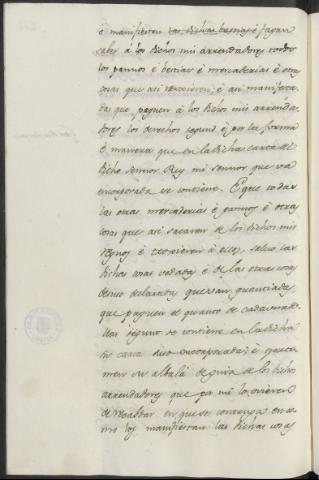 é manifiesten las dichas bestias é fagan
saber á los dichos mis arrendadores todos
los pannos é bestias é mercadurias é otras
cosas que asi troxieren; é asi manifesta-
das que paguen á los dichos mis arrenda-
dores los derechos segund é por la forma
é manera que en la dicha carta del
dicho sennor Rey mi sennor que va
encorporada se contiene. E que todas
las otras mercadurias é pannos é otras
cosas que asi sacaren de los dichos mis
regnos é troxieren á ellos, salvo las
dichas cosas vedadas é de las otras cosas
de suso declaradas que sean quantiadas,
que paguen el quanto de cada una de
llas segunt se contiene en la dicha
mi carta suso encorporada; é que to-
men su albalá de guia de los dichos
arrendadores que por mi lo ovieren
de recabdar en que se contengan en co-
mo los manifiestan las dichas cosas